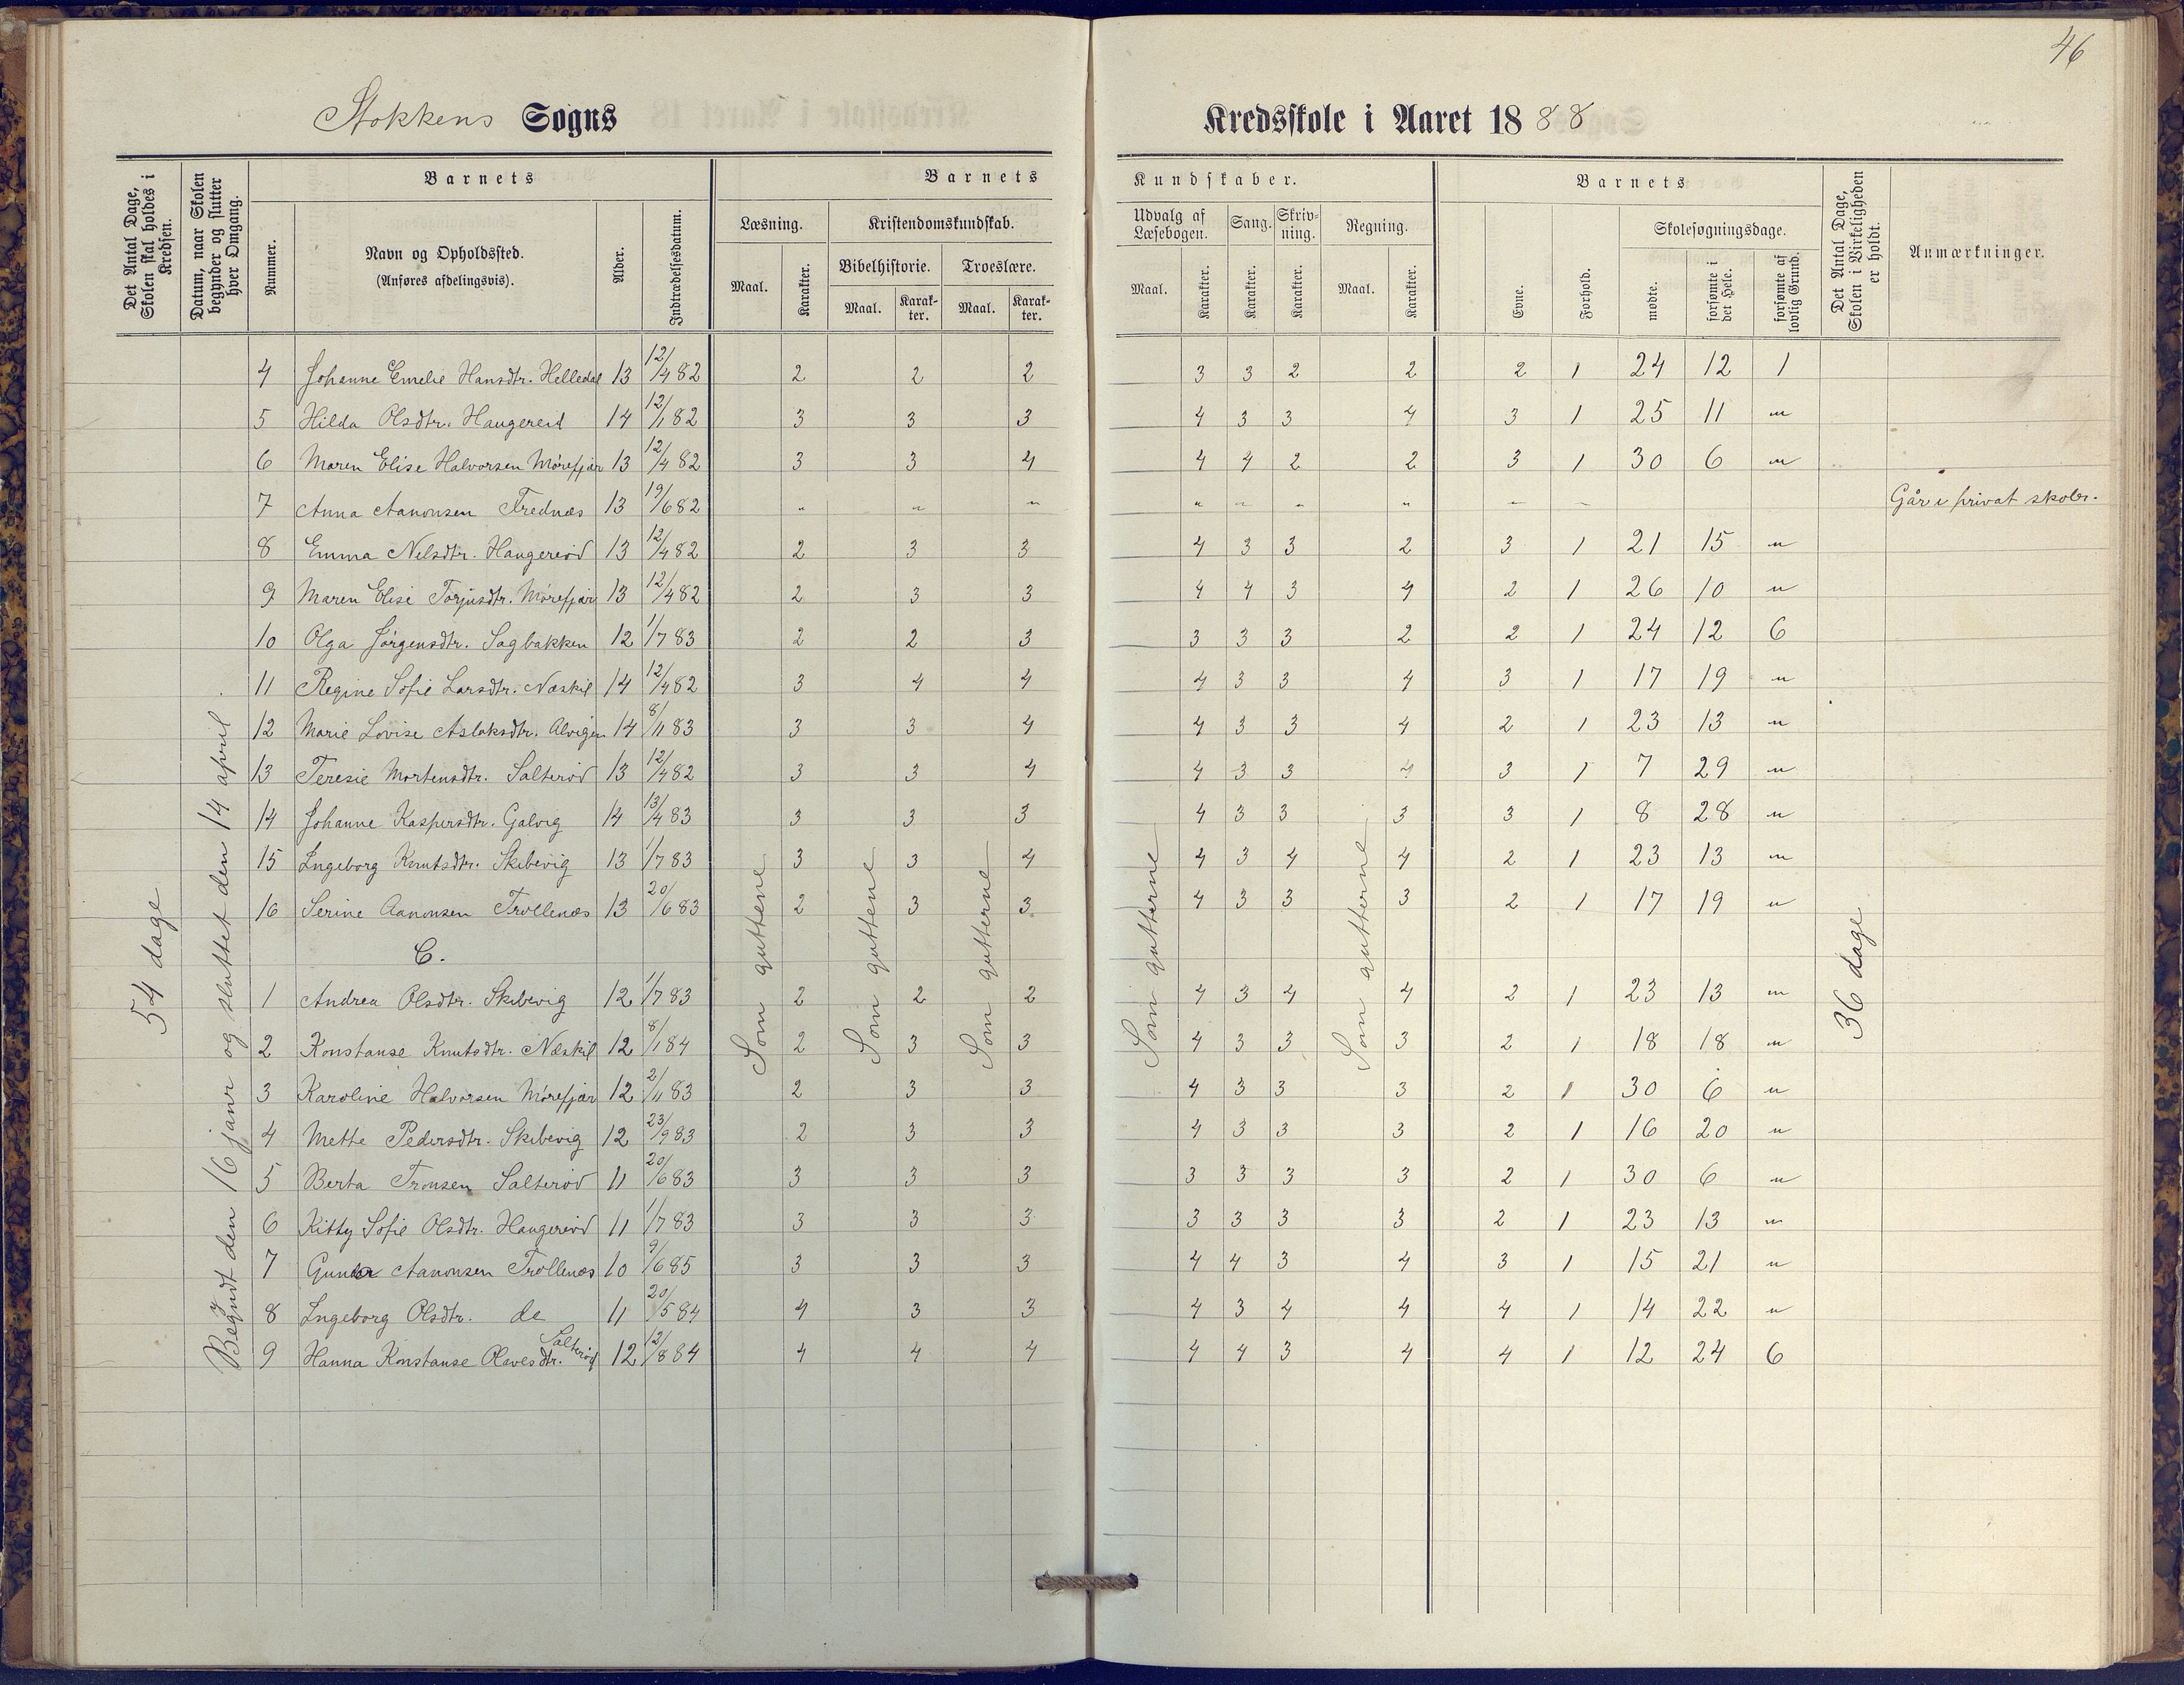 46
Stokkens Sogns Kredsskole i Aaret 1888
Det Antal Dage, Skolen skal holdes i Kredsen.
Datum, naar Skolen begynder og slutter hver Omgang.
Barnets
Nummer.
Navn og Opholdssted.
(Anføres afdelingsvis).
Alder.
Indtrædelsesdatum.
Barnets Kundskaber.
Læsning.
Maal.
Karakter.
Kristendomskundskab.
Bibelhistorie.
Maal.
Karakter.
Troeslære.
Maal.
Karakter.
Udvalg af Læsebogen.
Maal.
Karakter.
Sang.
Karakter.
Skrivning.
Karakter.
Regning.
Maal.
Karakter.
Barnets
Evne.
Forhold.
Skolesøgningsdage.
mødte.
forsømte i det Hele.
forsømte af lovlig Grund.
Det Antal Dage, Skolen i Virkeligheden er holdt.
Anmærkninger.
54 dage
Begyndt den 16 janr og sluttet den 14 april
4 Johanne Emelie Hansdtr. Helledal 13 12/4 82 2 2 2 3 3 2 2 2 1 24 12 1
5 Hilda Olsdtr. Haugereid 14 12/1 82 3 3 3 4 3 3 4 3 1 25 11 "
6 Maren Elise Halvorsen Mörefjær 13 12/4 82 3 3 4 4 4 2 2 3 1 30 6 "
7 Anna Aanonsen Trednæs 13 19/6 82 " " " " " " " " " Går i privat skoler.
8 Emma Nelsdtr. Haugereid 13 12/4 82 2 3 3 4 3 3 2 3 1 21 15 "
9 Maren Elise Torjusdtr. Mörefjær 13 12/4 82 2 3 3 4 4 3 4 2 1 26 10 "
10 Olga Jörgensdtr. Sagbakken 12 1/7 83 2 2 3 3 3 3 2 2 1 24 12 6
11 Regine Sofie Larsdtr. Næskil 14 12/4 82 3 4 4 4 3 3 4 3 1 17 19 "
12 Marie Lovise Aslaksdtr. Alvigen 14 8/11 83 3 3 4 4 3 3 4 2 1 23 13 "
13 Teresie Mortensdtr. Salteröd 13 12/4 82 3 3 4 4 3 3 4 3 1 7 29 "
14 Johanne Kaspersdtr. Galvig 14 13/4 83 3 3 3 4 3 3 3 3 1 8 28 "
15 Ingeborg Knutsdtr. Skibevig 13 1/7 83 3 3 4 4 3 4 4 2 1 23 13 "
16 Serine Aanonsen Trollenæs 13 20/6 83 2 3 3 4 3 3 3 2 1 17 19 "
C.
1 Andrea Olsdtr. Skibevig 12 1/7 83 2 2 2 4 3 4 4 2 1 23 13 "
2 Konstanse Knutsdtr. Næskil 12 8/1 84 2 3 3 4 3 3 3 2 1 18 18 "
3 Karoline Halvorsen Mörefjær 12 2/11 83 2 3 3 4 3 3 3 2 1 30 6 "
4 Mette Pedersdtr. Skibevig 12 23/9 83 2 3 3 4 3 3 3 2 1 16 20 "
5 Berta Tronsen Salteröd 11 20/6 83 3 3 3 3 3 3 3 2 1 30 6 "
6 Kitty Sofie Olsdtr. Haugeröd 11 1/7 83 3 3 3 3 3 3 3 2 1 23 13 "
7 Aanonsen Trollenæs 10 9/6 85 3 3 3 4 4 3 4 3 1 15 21 "
8 Ingeborg Olsdtr. do 11 20/5 84 4 3 3 4 3 4 4 4 1 14 22 "
9 Hanna Konstanse Olavesdtr. Salteröd 12 12/8 84 4 4 4 4 4 3 4 4 1 12 24 6
Som guttene
Som guttene
Som gutterne
Som gutterne
Som gutterne
36 dage